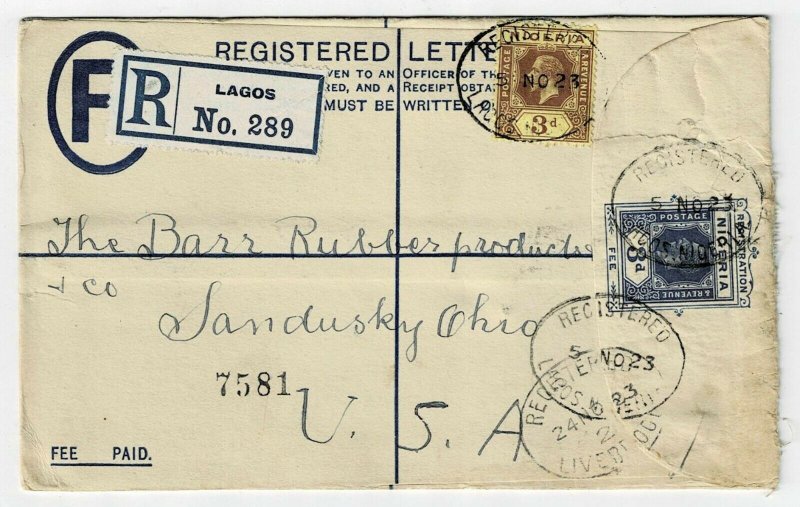 REGISTERED LETTE
VEN TO AN OFFICER OF THE
RED, AND A RECEIPT OBTAI
MUST BE WRITTEN
R
LAGOS
No. 289
NIGERIA
POSTAGE
& REVENUE
3d
REGISTERED
5 NO 23
LAGOS
REGISTERED
5 NO 23
LAGOS. NIGERIA
REGISTRATION
FEE
NIGERIA
POSTAGE
& REVENUE
3d
The Barr Rubber products
+ co
Sandusky Ohio
7581
U. S. A
REGISTERED
5 NO 23
LAGOS. NIGERIA
REGISTERED
24 NO 23
LIVERPOOL
FEE PAID.